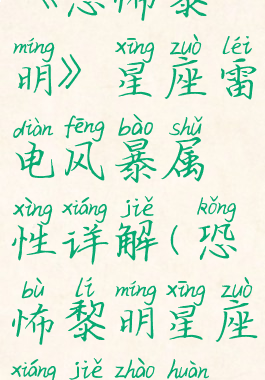 《恐怖黎
míng xīng zuò léi
明》 星座雷
diàn fēng bào shǔ
电风暴属
xìng xiáng jiě kǒng
性详解(恐
bù lí míng xīng zuò
怖黎明星座
xiáng jiě zhào huàn